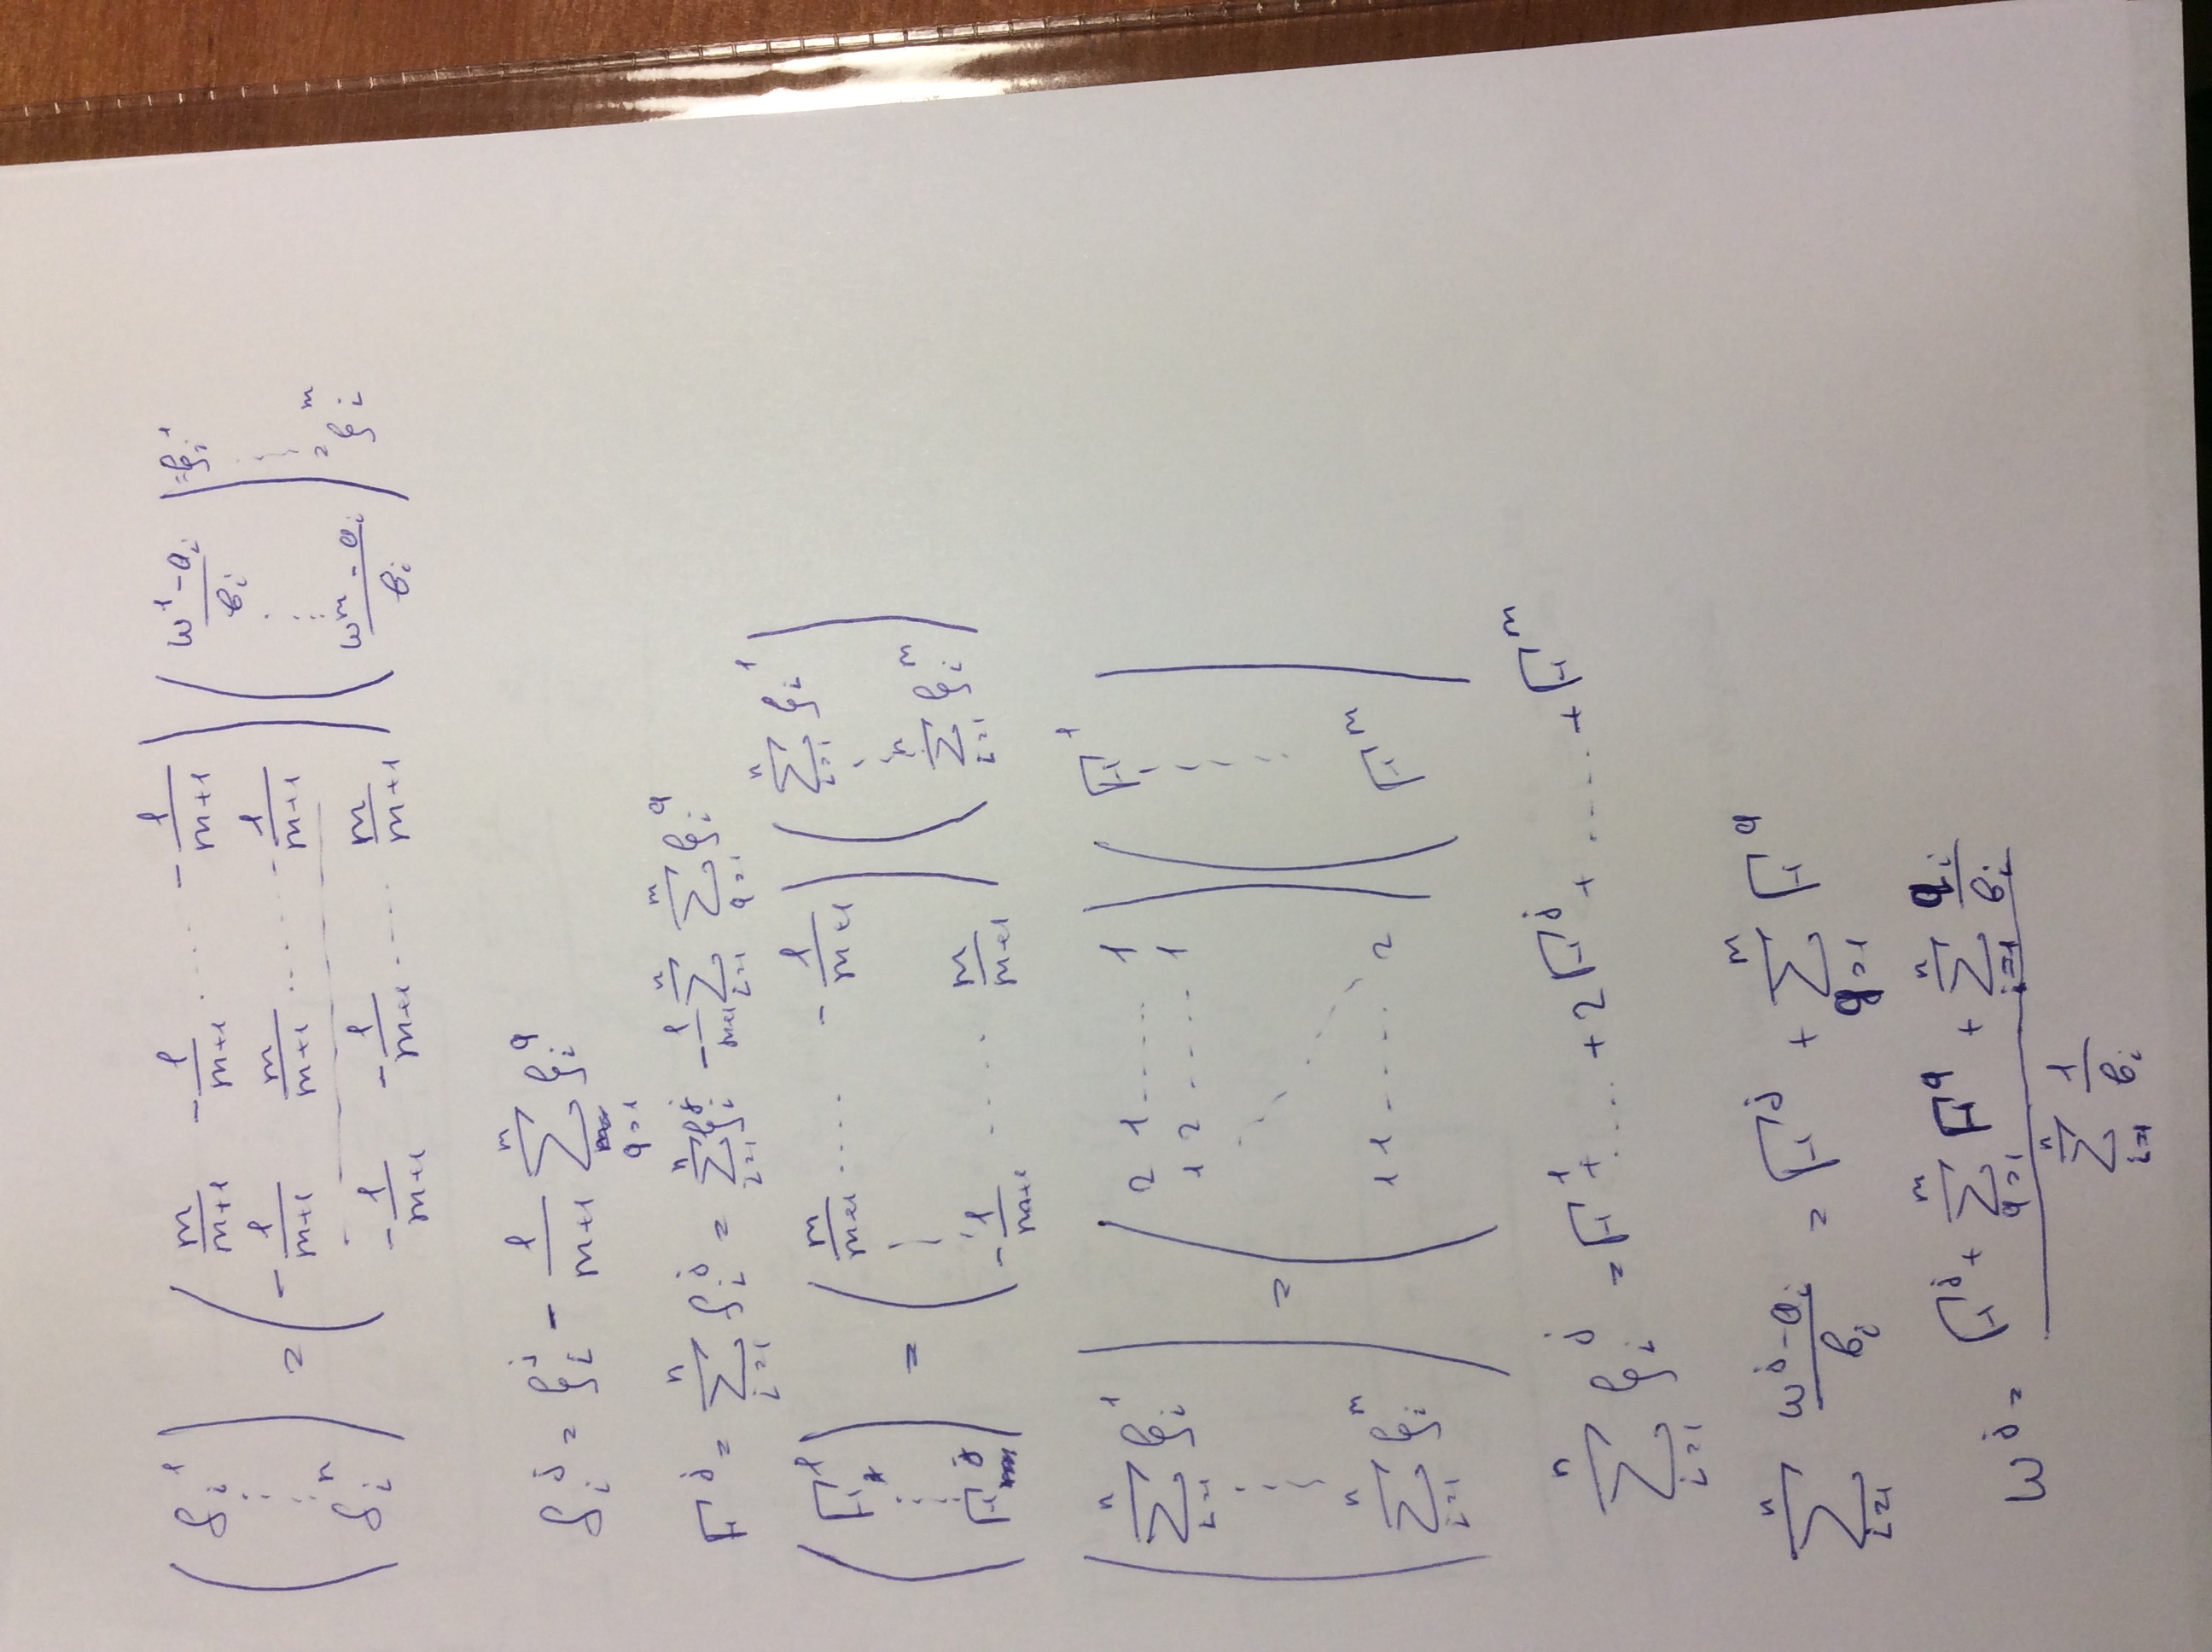 $\begin{pmatrix} f_i^1 \\ \vdots \\ f_i^n \end{pmatrix} = \begin{pmatrix} \frac{m}{m+1} & -\frac{1}{m+1} & \dots & -\frac{1}{m+1} \\ -\frac{1}{m+1} & \frac{m}{m+1} & \dots & -\frac{1}{m+1} \\ - & - & - & - \\ -\frac{1}{m+1} & -\frac{1}{m+1} & \dots & \frac{m}{m+1} \end{pmatrix} \begin{pmatrix} \frac{\omega^1 - a_i}{b_i} \\ \vdots \\ \frac{\omega^m - a_i}{b_i} \end{pmatrix} \begin{matrix} = \xi_i^1 \\ \vdots \\ = \xi_i^m \end{matrix}$
$f_i^j = \xi_i^j - \frac{1}{m+1} \sum_{q=1}^{m} \xi_i^q$
$F^j = \sum_{i=1}^{n} f_i^j = \sum_{i=1}^{n} \xi_i^j - \frac{1}{m+1} \sum_{i=1}^{n} \sum_{q=1}^{m} \xi_i^q$
$\begin{pmatrix} F^1 \\ \vdots \\ F^j \end{pmatrix} = \begin{pmatrix} \frac{m}{m+1} & \dots & -\frac{1}{m+1} \\ \vdots & & \\ -\frac{1}{m+1} & \dots & \frac{m}{m+1} \end{pmatrix} \begin{pmatrix} \sum_{i=1}^{n} \xi_i^1 \\ \vdots \\ \sum_{i=1}^{n} \xi_i^m \end{pmatrix}$
$\begin{pmatrix} \sum_{i=1}^{n} \xi_i^1 \\ \vdots \\ \sum_{i=1}^{n} \xi_i^m \end{pmatrix} = \begin{pmatrix} 2 & 1 & \dots & 1 \\ 1 & 2 & \dots & 1 \\ & & \ddots & \\ 1 & 1 & \dots & 2 \end{pmatrix} \begin{pmatrix} F^1 \\ \vdots \\ F^m \end{pmatrix}$
$\sum_{i=1}^{n} \xi_i^j = F^1 + \dots + 2F^j + \dots + F^m$
$\sum_{i=1}^{n} \frac{\omega^j - a_i}{b_i} = F^j + \sum_{q=1}^{m} F^q$
$\omega^j = \frac{F^j + \sum_{q=1}^{m} F^q + \sum_{i=1}^{n} \frac{a_i}{b_i}}{\sum_{i=1}^{n} \frac{1}{b_i}}$